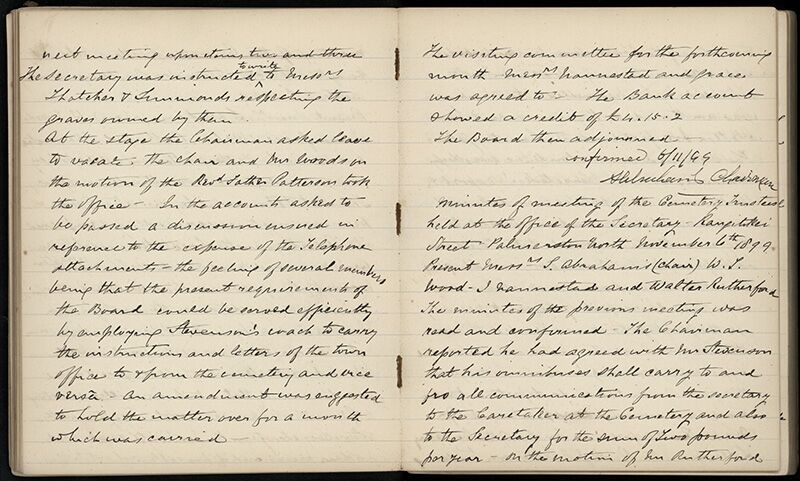 next meeting upon items two and three
The Secretary was instructed to write to Messrs
Thatcher & Simmonds respecting the
graves owned by them.
At the stage the Chairman asked leave
to vacate the chair and Mr Woods on
the motion of the Revd Father Patterson took
the office - In the accounts asked to
be passed a discussion ensued in
reference to the expense of the Telephone
attachments - the feeling of several members
being that the present requirements of
the Board could be served efficiently
by employing Stevenson's coach to carry
the instructions and letters of the town
office to & from the cemetery and vice
versa - An amendment was suggested
to hold the matter over for a month
which was carried
The visiting committee for the forthcoming
month Messrs Nannestad and Grace
was agreed to - The Bank account
showed a credit of £4.15.2
The Board then adjourned
confirmed 6/11/99
S Abrahams Chairman
Minutes of meeting of the Cemetery Trustees
held at the office of the Secretary - Rangitikei
Street Palmerston North November 6th 1899
Present Messrs S. Abrahams (Chair) W. T.
Wood - J Nannestad and Walter Rutherford
The minutes of the previous meeting was
read and confirmed - The Chairman
reported he had agreed with Mr Stevenson
that his omnibuses shall carry to and
fro all communications from the secretary
to the Caretaker at the Cemetery and also
to the Secretary for the sum of Two pounds
per year - On the motion of Mr Rutherford